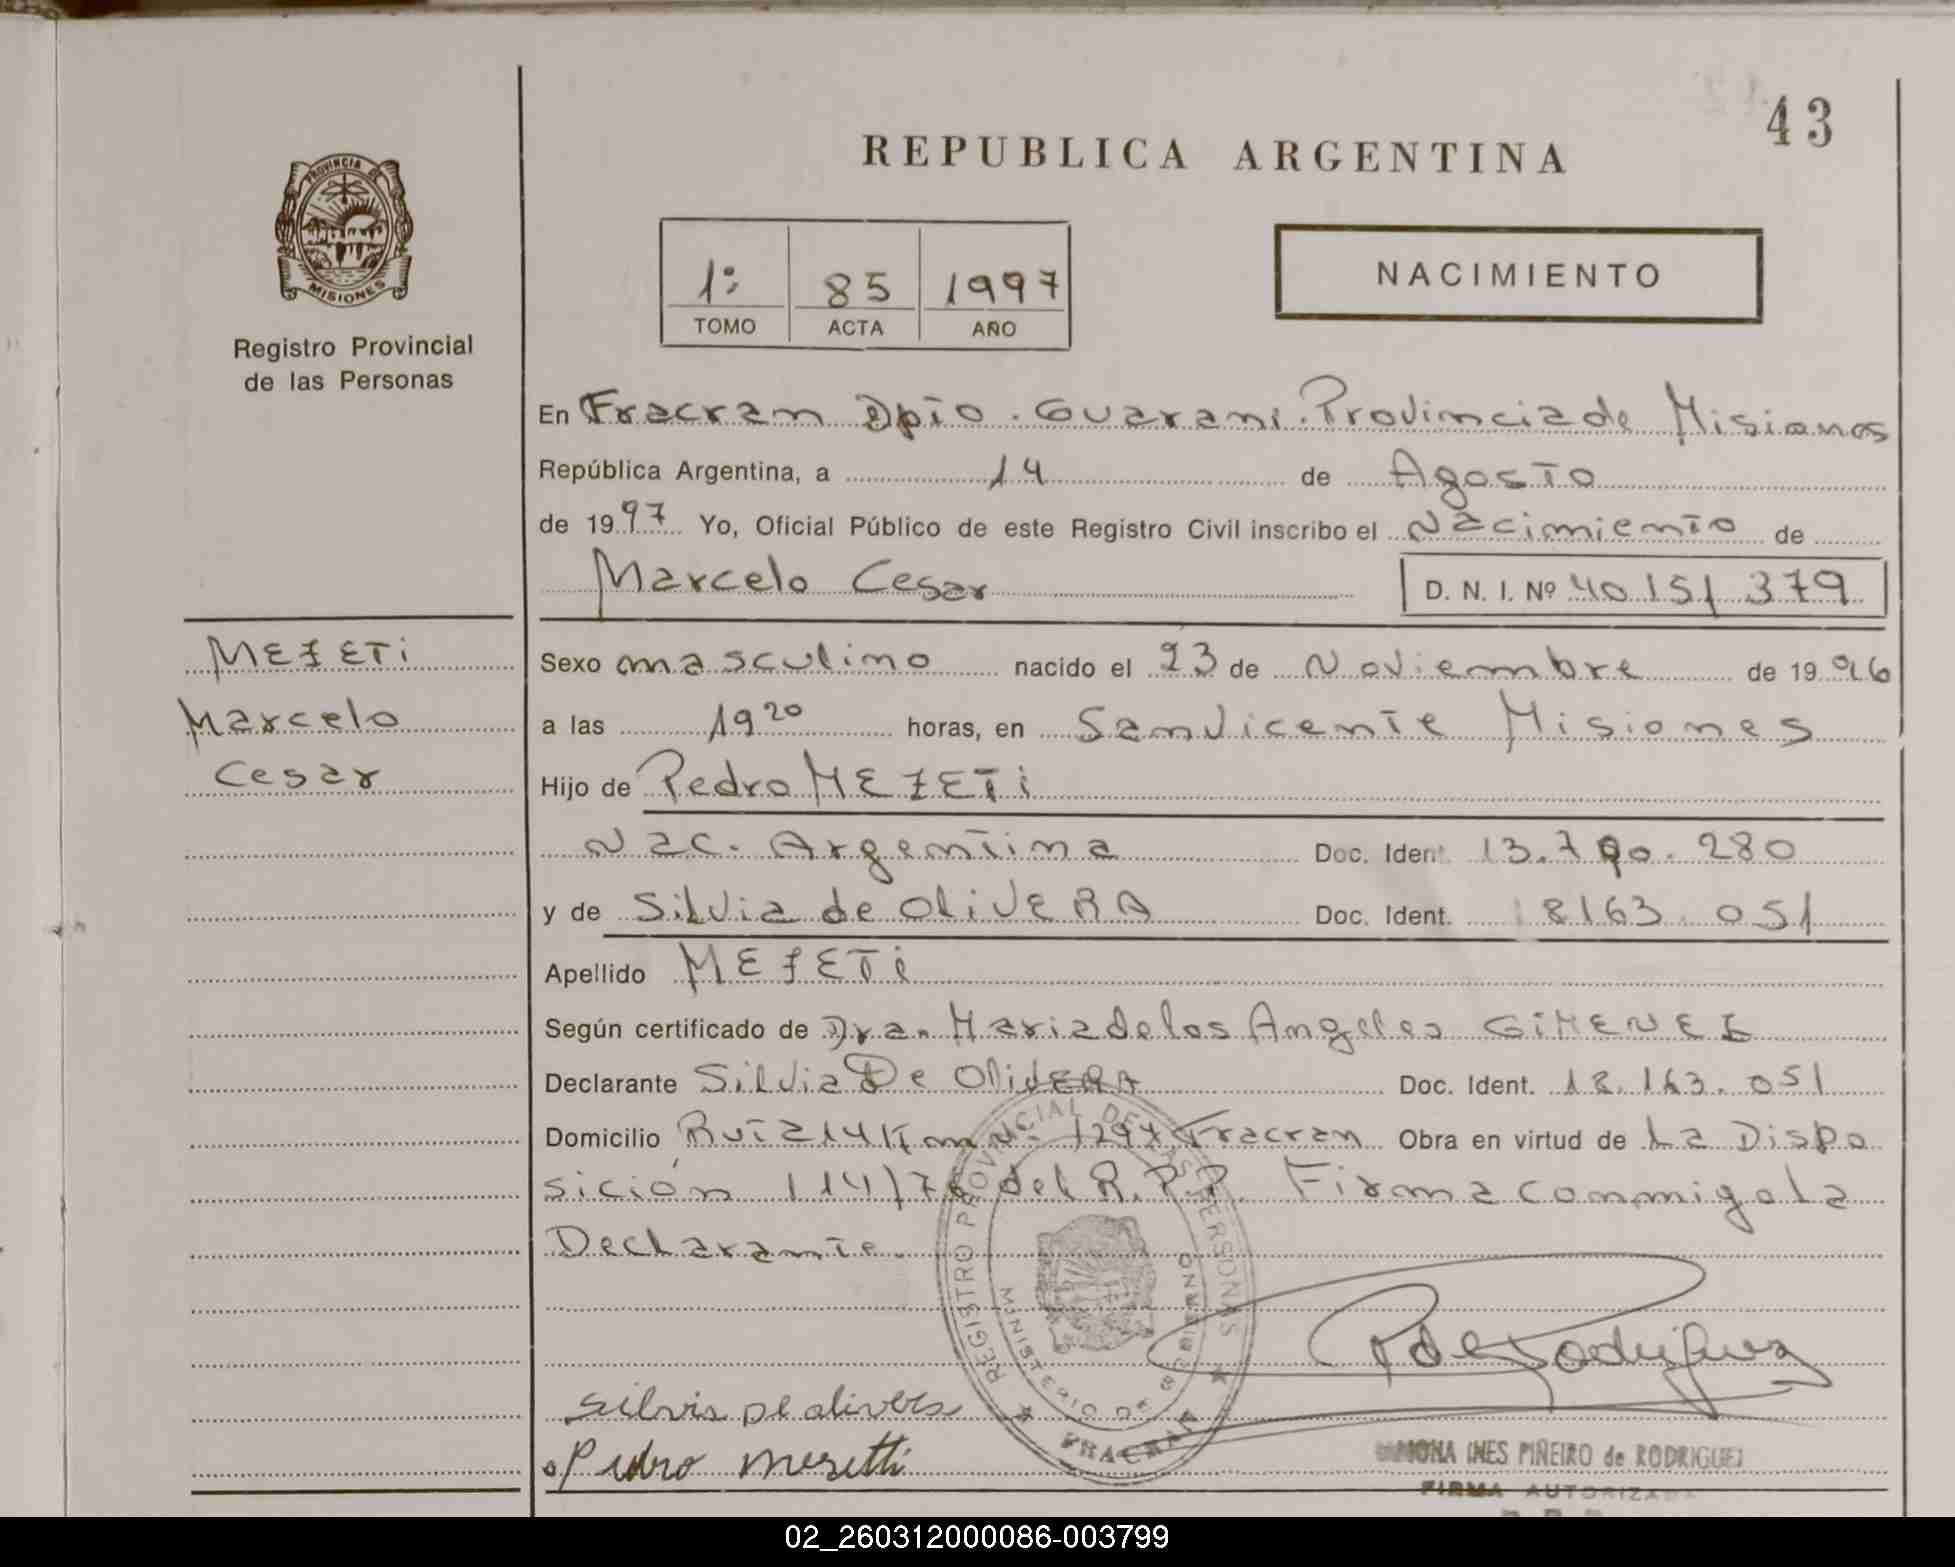 43
REPUBLICA ARGENTINA
PROVINCIA DE
MISIONES
Registro Provincial
de las Personas
1º 85 1997
TOMO ACTA AÑO
NACIMIENTO
En Fracran Dpto. Guarani. Provincia de Misiones
República Argentina, a 14 de Agosto
de 1997 Yo, Oficial Público de este Registro Civil inscribo el Nacimiento de
Marcelo Cesar D. N. I. Nº 40 151 379
MEZETi
Marcelo
Cesar
Sexo masculino nacido el 23 de Noviembre de 1996
a las 19 20 horas, en San Vicente Misiones
Hijo de Pedro MEZETi
Nac. Argentina Doc. Ident. 13.790.280
y de Silvia de OliVERA Doc. Ident. 18163 051
Apellido MEZETi
Según certificado de Dra. Maria de los Angeles GiMENEZ
Declarante Silvia De OliVERA Doc. Ident. 18.163.051
Domicilio Ruta 14 Km Nº 1294 Fracran Obra en virtud de La Dispo
sición 114/76 del R.P.P. Firma conmigo la
Declarante.
REGISTRO PROVINCIAL DE LAS PERSONAS
MINISTERIO DE GOBIERNO
FRACRAN
R de Rodriguez
Silvia de olivera
Pedro Mezetti
RAMONA INES PIÑEIRO de RODRIGUEZ
FIRMA AUTORIZADA
02_260312000086-003799